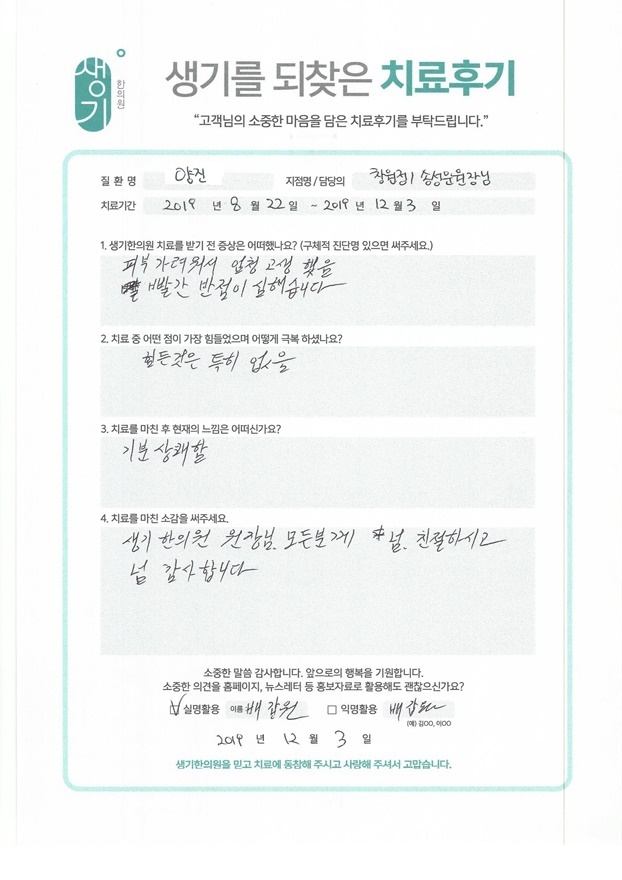 생기
한의원
생기를 되찾은 치료후기
“고객님의 소중한 마음을 담은 치료후기를 부탁드립니다.”
질 환 명 양진 지점명 / 담당의 창원점 / 송성문원장님
치료기간 2019 년 8 월 22 일 ~ 2019 년 12 월 3 일
1. 생기한의원 치료를 받기 전 증상은 어떠했나요? (구체적 진단명 있으면 써주세요.)
피부 가려워서 엄청 고생 했음
빨간 반점이 심했습니다
2. 치료 중 어떤 점이 가장 힘들었으며 어떻게 극복 하셨나요?
힘든것은 특히 없음
3. 치료를 마친 후 현재의 느낌은 어떠신가요?
기분 상쾌함
4. 치료를 마친 소감을 써주세요.
생기 한의원 원장님. 모든분께 넘. 친절하시고
넘 감사합니다
소중한 말씀 감사합니다. 앞으로의 행복을 기원합니다.
소중한 의견을 홈페이지, 뉴스레터 등 홍보자료로 활용해도 괜찮으신가요?
실명활용 이름 배 익명활용 배
(예) 김OO, 이OO
2019 년 12 월 3 일
생기한의원을 믿고 치료에 동참해 주시고 사랑해 주셔서 고맙습니다.